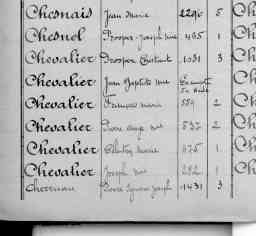 Chesnais Jean Marie 2296 5 Ch
Chesnel Prosper Joseph Me 435 1 Ch
Chevalier Prosper Constant 1031 3 Ch
Chevalier Jean Baptiste Me Ch
Chevalier François Marie 554 2 Ch
Chevalier Pierre Ange Me 537 2 Ch
Chevalier Marie 475 1 Ch
Chevalier Joseph Me 282 1 Ch
Pierre Joseph 1431 3